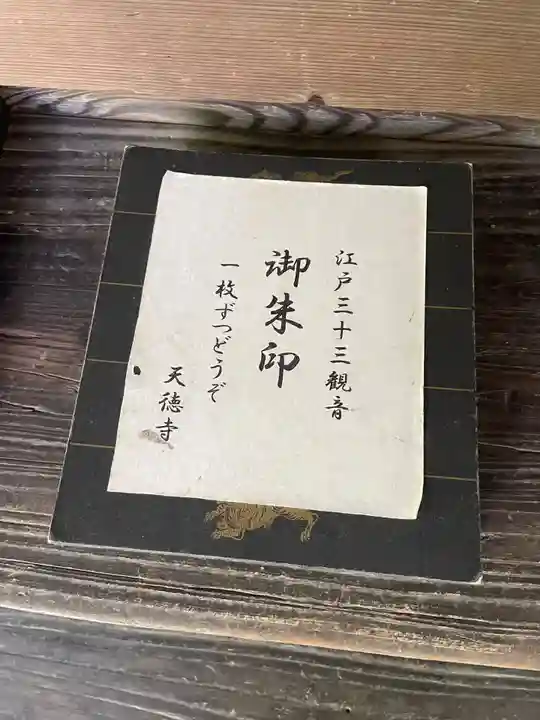 江戸三十三観音
御朱印
一枚ずつどうぞ
天徳寺